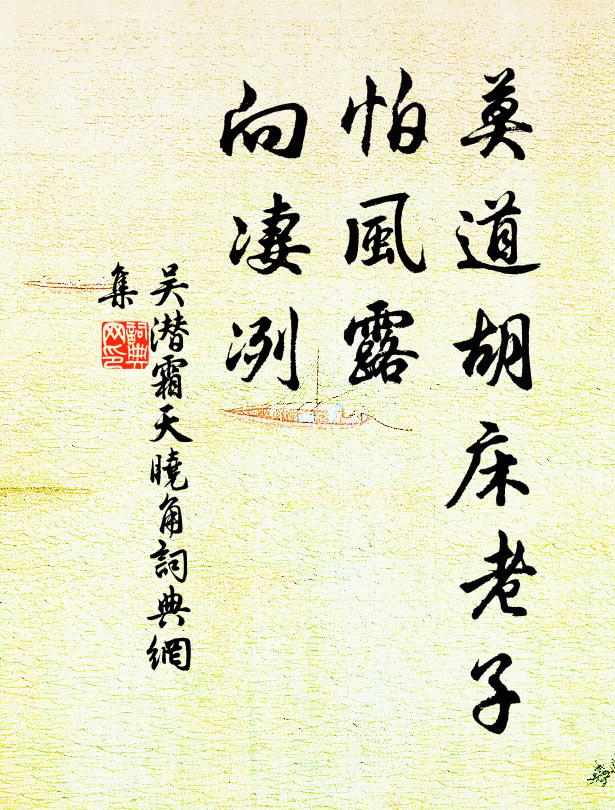 莫道胡床老子
怕風露
向淒冽
吴潜霜天曉角詞典網
集
詞典
网印